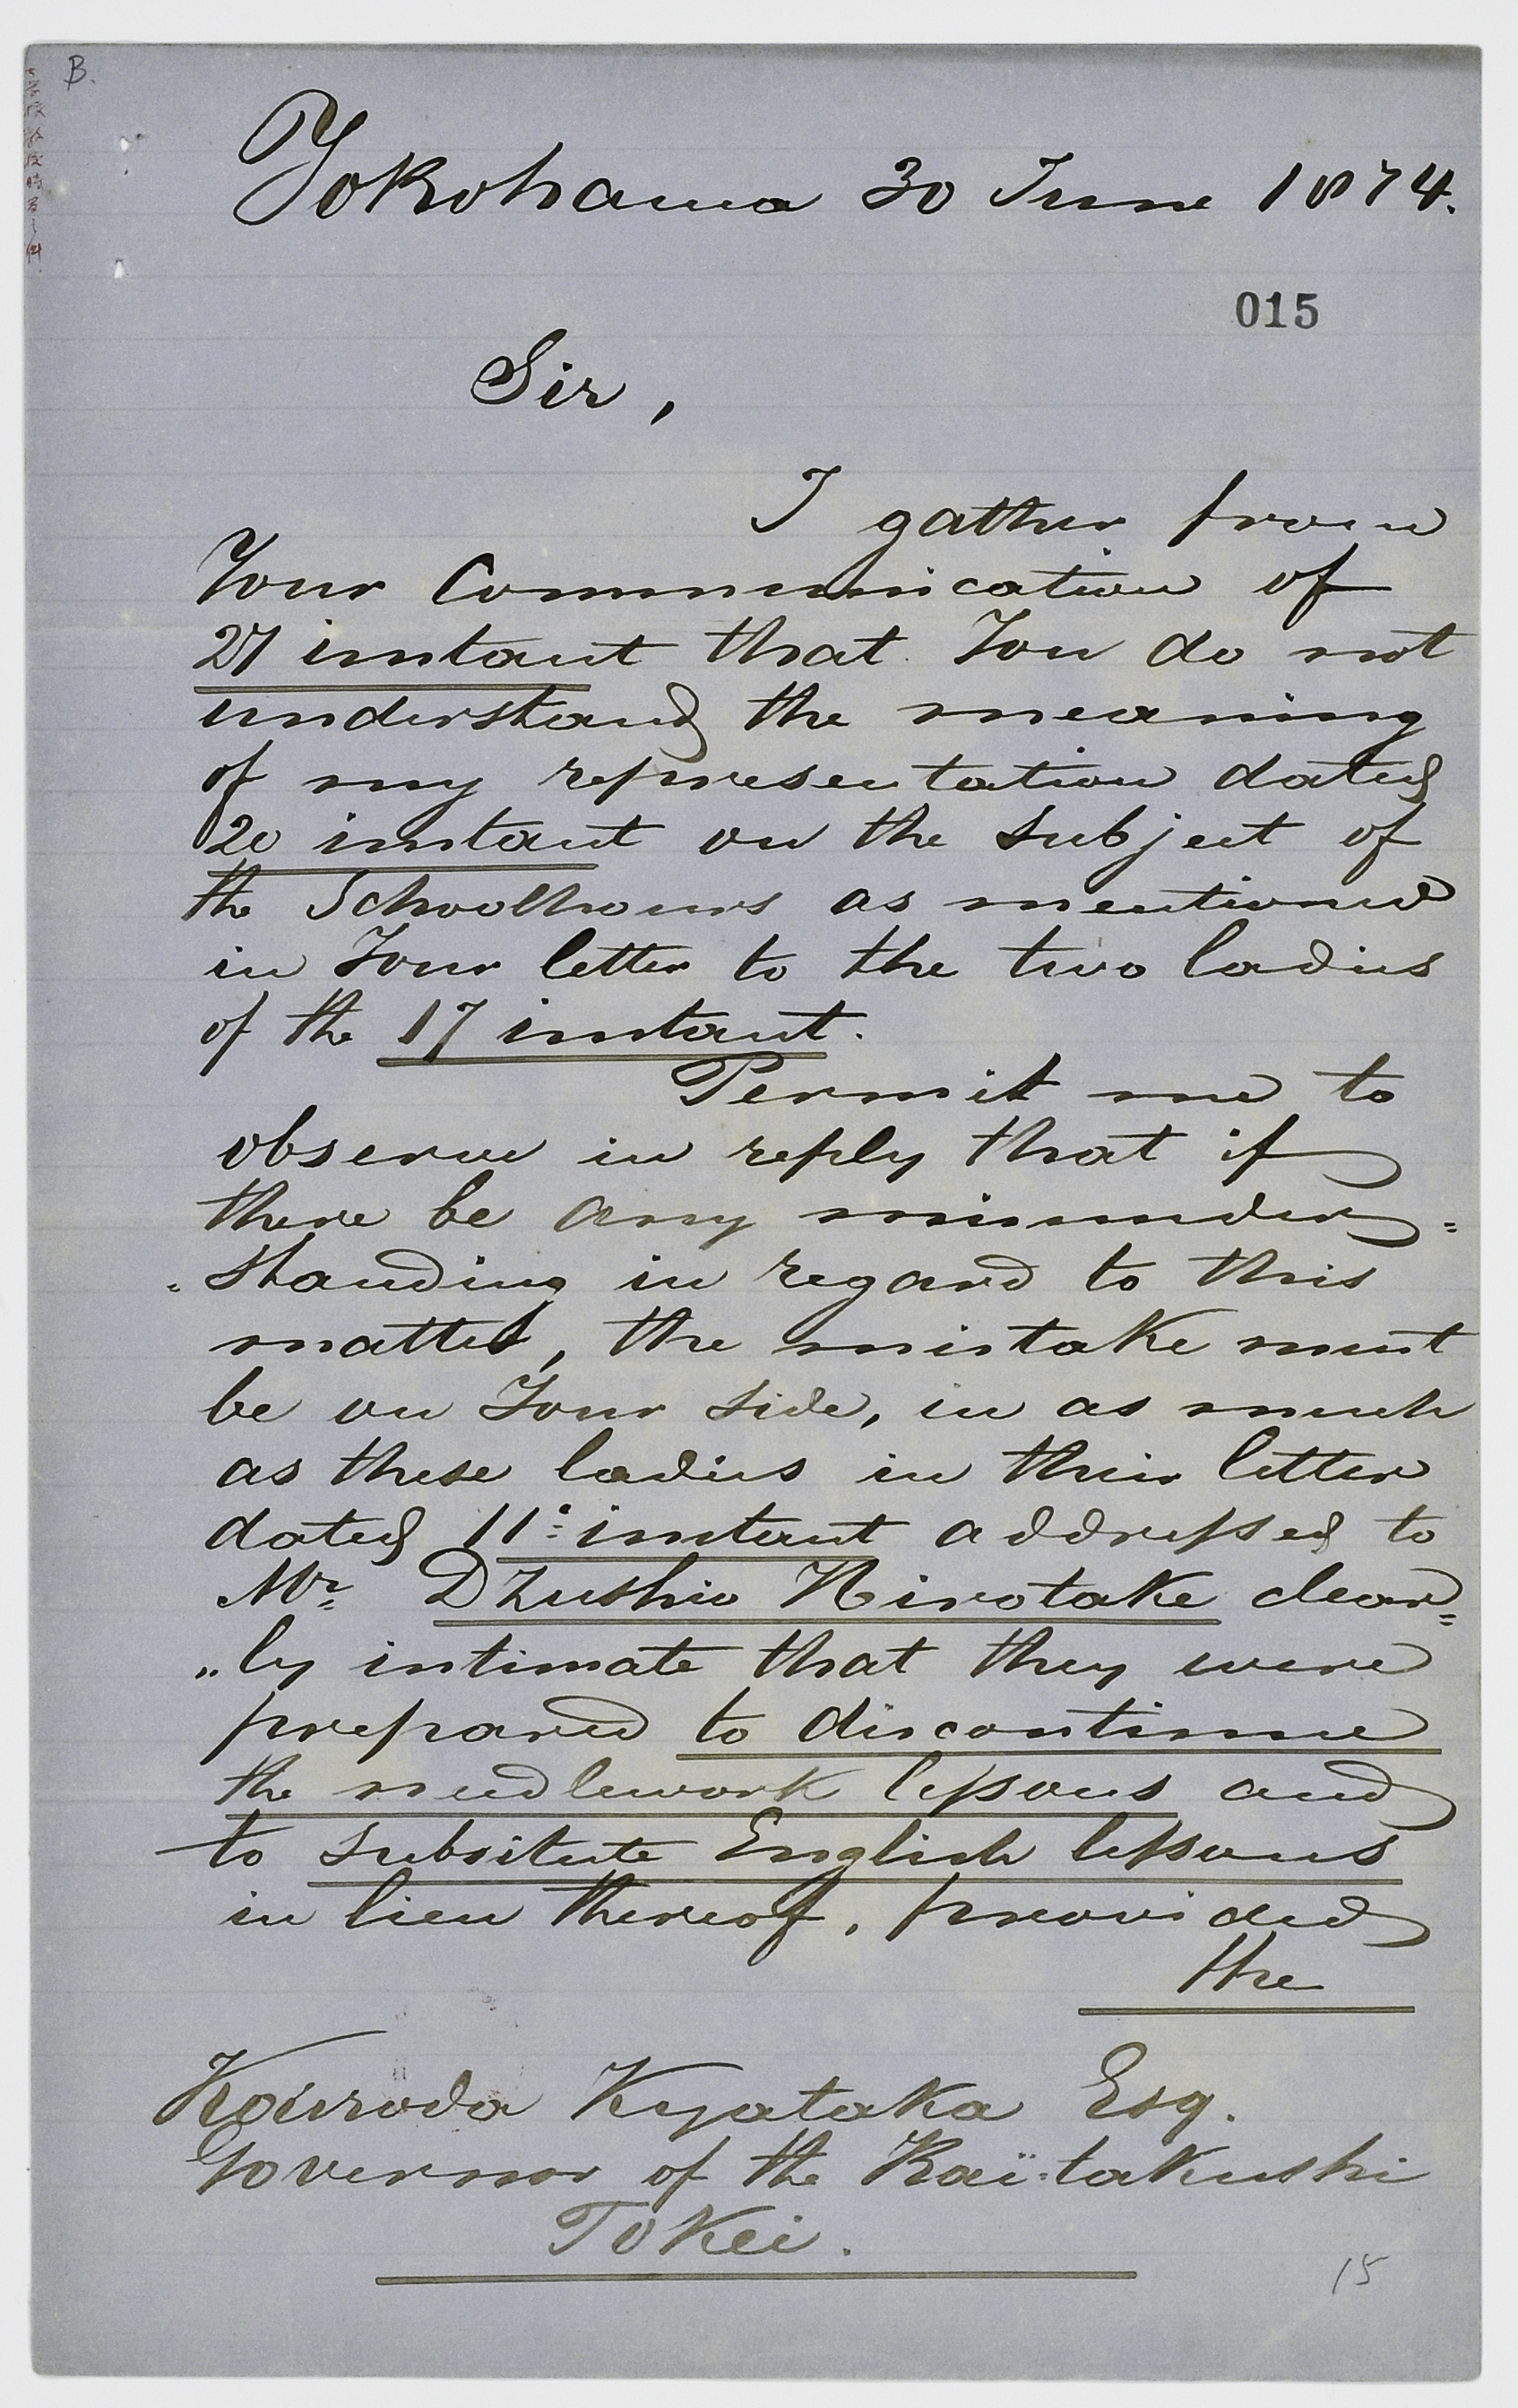 B.
Yokohama 30 June 1874.
015
Sir,
I gather from
Your Communication of
27 instant that You do not
understand the meaning
of my representation dated
20 instant on the subject of
the Schoolhours as mentioned
in Your letter to the two ladies
of the 17 instant.
Permit me to
observe in reply that if
there be any misunder=
"standing in regard to this
matter, the mistake must
be on Your side, in as much
as these ladies in their letter
dated 11: instant addressed to
Mr. Dzushio Hirotake clear=
"ly intimate that they were
prepared to discontinue
the needlework lessons and
to subsitute English lessons
in lieu thereof, provided
the
Kouroda Kyataka Esq.
Governor of the Kaï-takushi
Tokei.
15